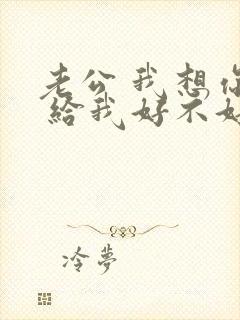 老公我想你
給我好不好
冷夢